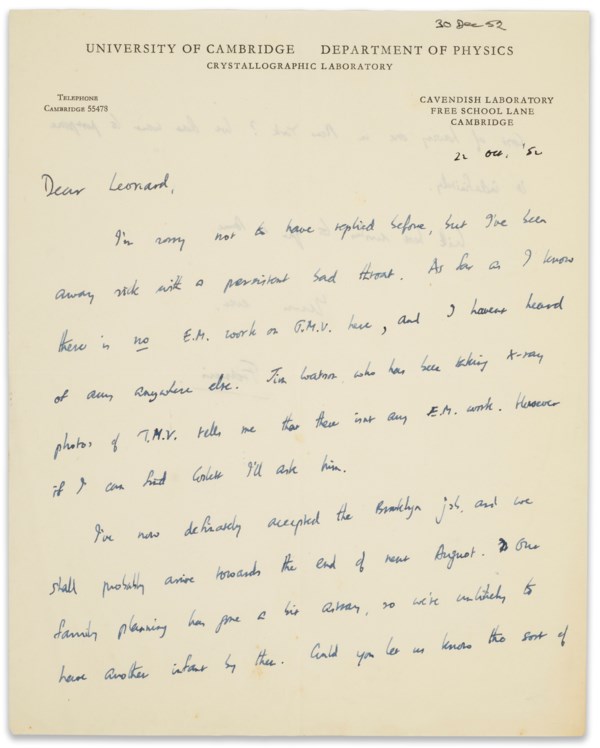 30 Dec 52
UNIVERSITY OF CAMBRIDGE DEPARTMENT OF PHYSICS
CRYSTALLOGRAPHIC LABORATORY
TELEPHONE
CAMBRIDGE 55478
CAVENDISH LABORATORY
FREE SCHOOL LANE
CAMBRIDGE
22 Oct, '52
Dear Leonard,
I'm sorry not to have replied before, but I've been
away sick with a persistent bad throat. As far as I know
there is no E.M. work on T.M.V. here, and I haven't heard
of any anywhere else. Jim Watson who has been taking X-ray
photos of T.M.V. tells me that there isn't any E.M. work. However
if I can find Coslett I'll ask him.
I've now definately accepted the Brooklyn job, and we
shall probably arrive towards the end of next August. Our
family planning has gone a bit astray, so we're unlikely to
have another infant by then. Could you let us know the sort of